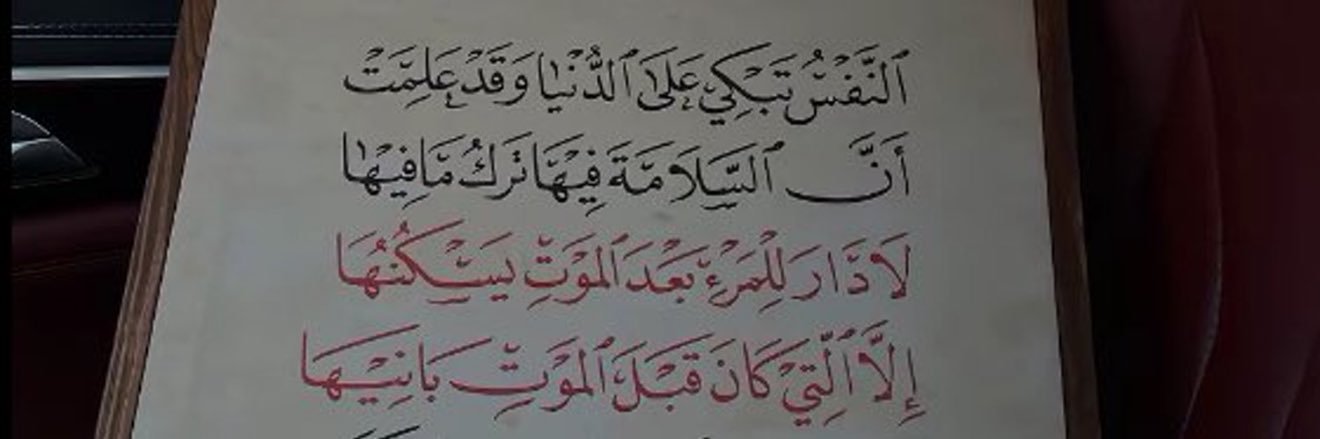 ٱلنَّفْسُ تَبْكِي عَلَى ٱلدُّنْيَا وَقَدْ عَلِمَتْ
أَنَّ ٱلسَّلَامَةَ فِيهَا تَرْكُ مَا فِيهَا
لَا دَارَ لِلْمَرْءِ بَعْدَ ٱلْمَوْتِ يَسْكُنُهَا
إِلَّا ٱلَّتِي كَانَ قَبْلَ ٱلْمَوْتِ بَانِيْهَا